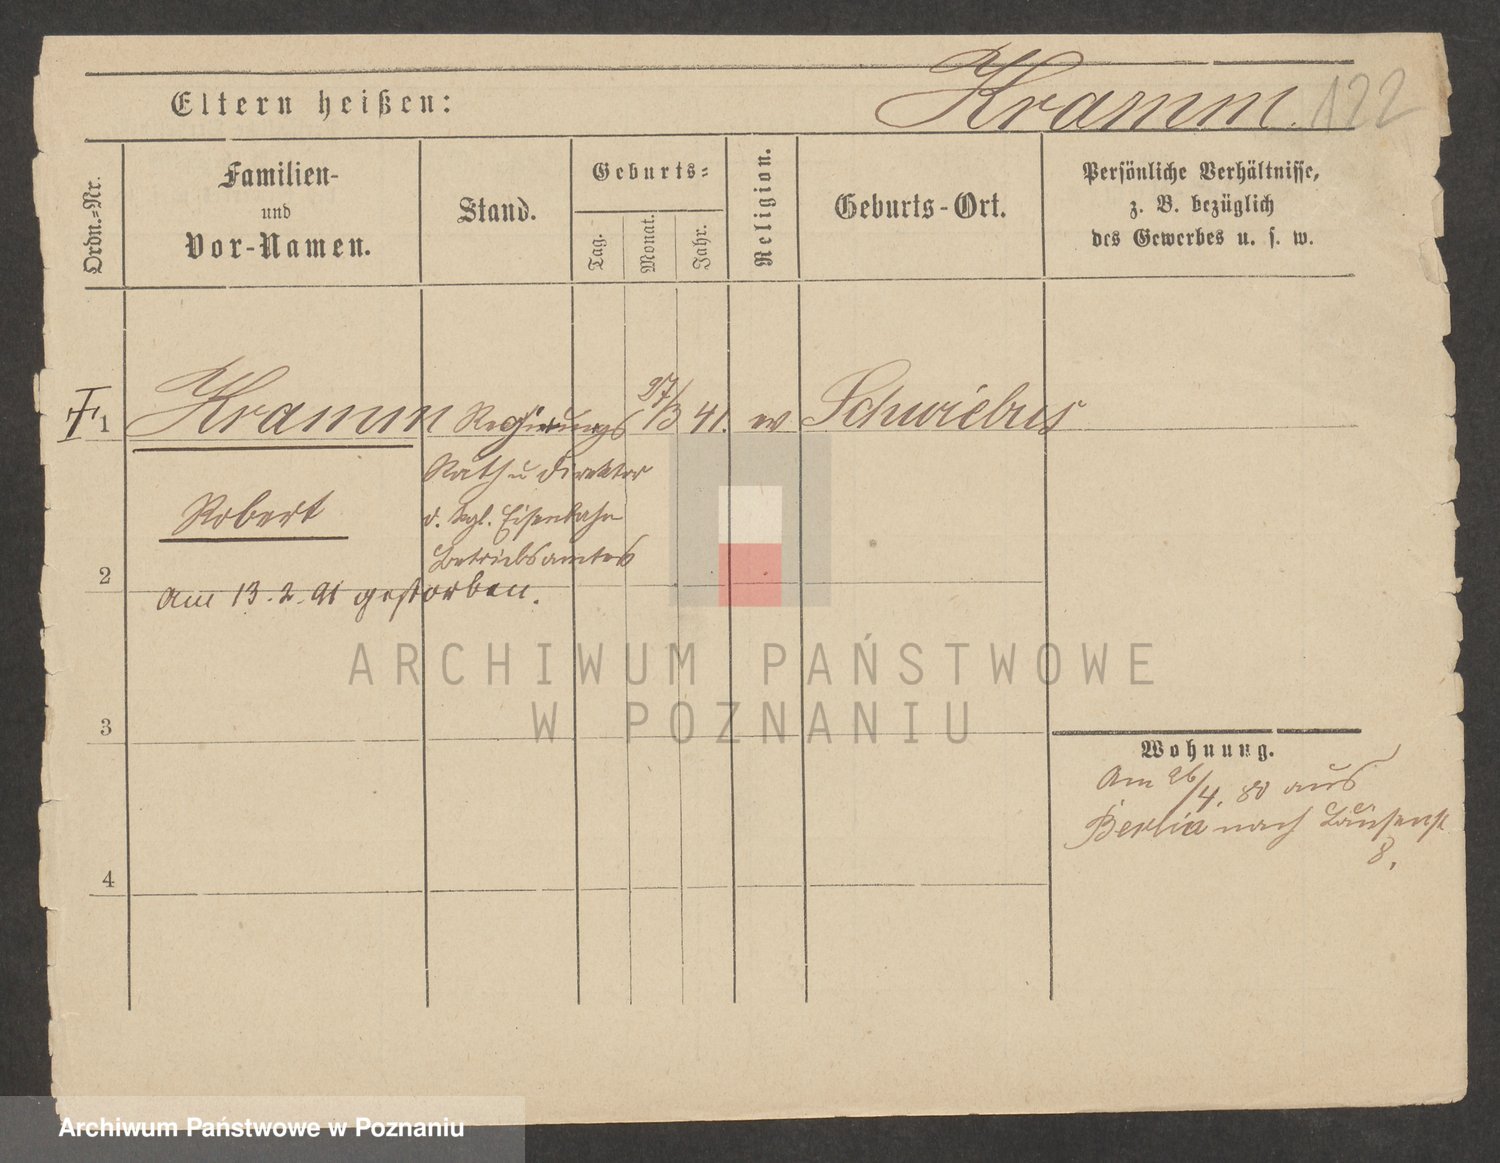 Kramm.
122
Eltern heißen:
Ordn.=Nr.
Familien-
und
Vor-Namen.
Stand.
Geburts=
Tag.
Monat.
Jahr.
Religion.
Geburts-Ort.
Persönliche Verhältnisse,
z. B. bezüglich
des Gewerbes u. s. w.
1
Kramm
Regierungs
27/3
41.
ev
Schwiebus
Rath u Direktor
Robert
d. kgl. Eisenbahn
Betriebsamtes
2
am 13.2.91 gestorben.
ARCHIWUM PAŃSTWOWE
W POZNANIU
3
Wohnung.
Am 26/4. 80 aus
Berlin nach
8.
4
Archiwum Państwowe w Poznaniu